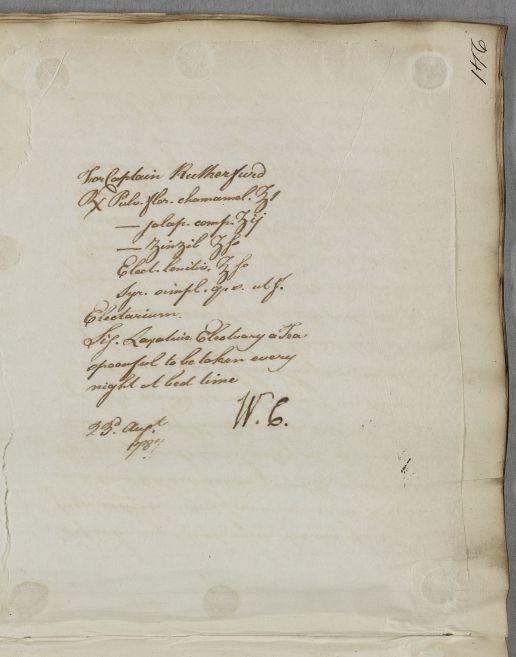 241
For Captain Rutherfurd
℞ Pulv. flor. chamamel. ʒ1
— jalap. comp. ʒij
— Zinzib. ʒſs
Elect. lenitiv. ʒſs
Syr. simpl. q.v. ut f.
Electarium.
Sig. Laxative Electuary a Tea
spoonful to be taken every
night at bed time
W. C.
23d. Augt.
178